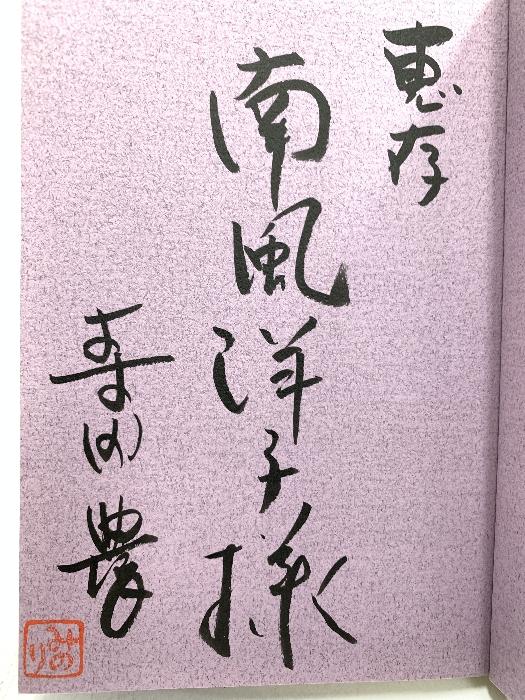 恵存
南風洋子様
寺田農
みのり